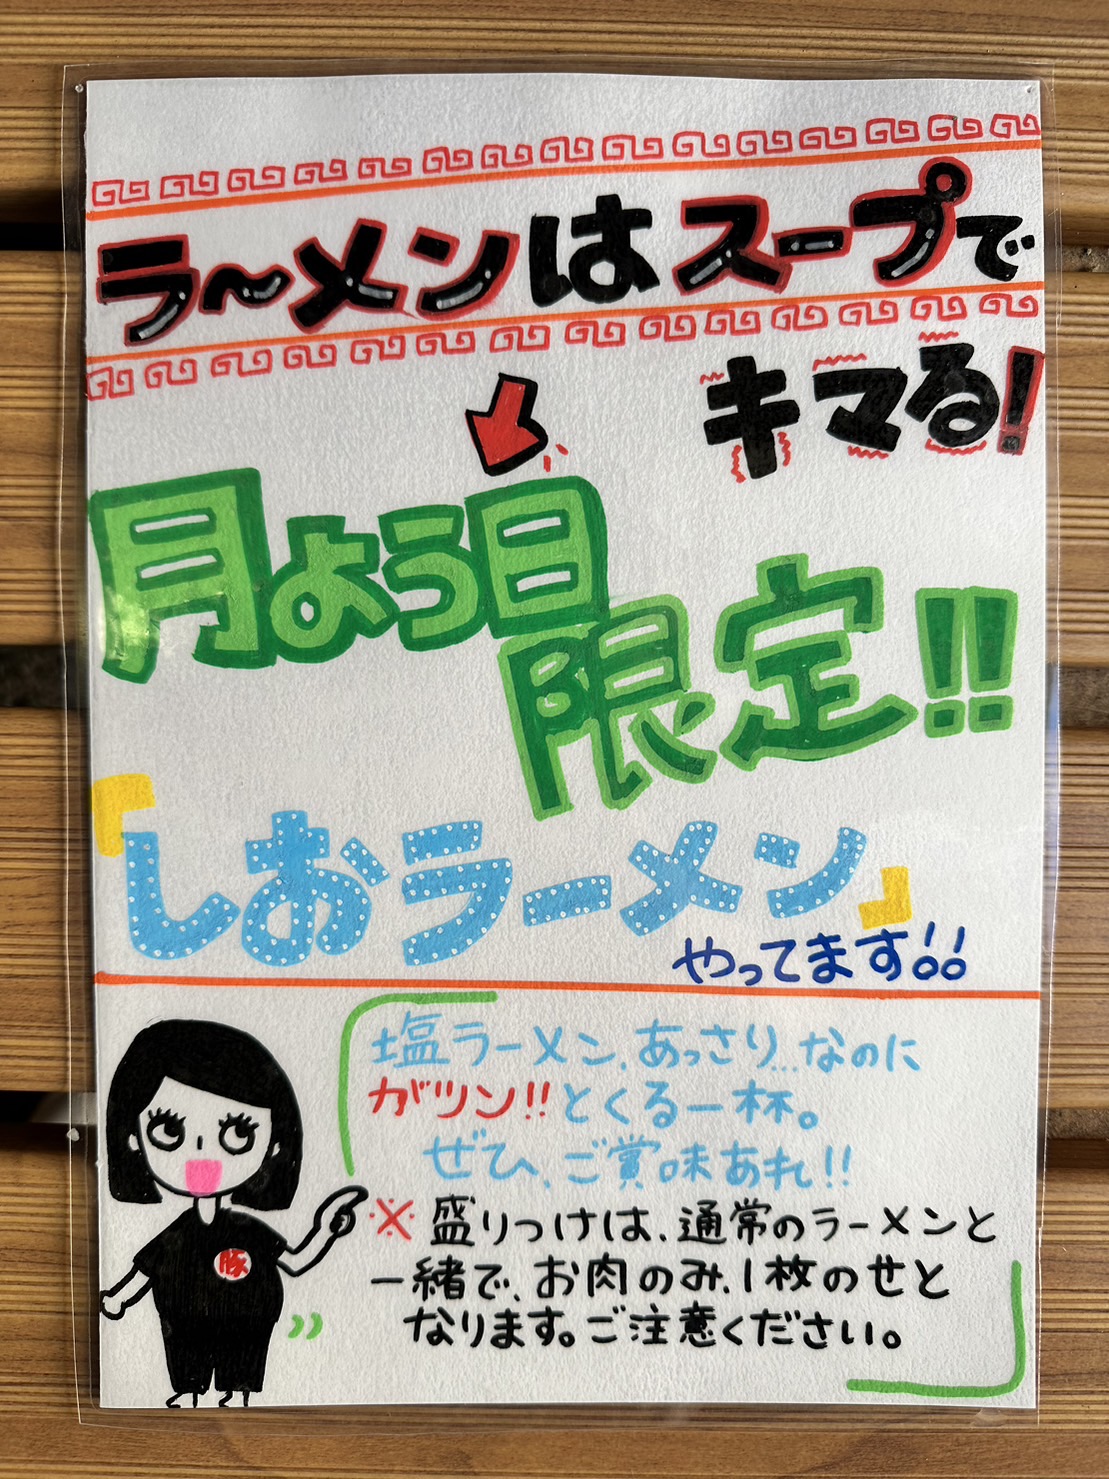 ラ〜メンはスープで
キマる!
月よう日
限定!!
「しおラーメン」
やってます!!
塩ラーメン、あっさり…なのに
ガツン!!とくる一杯。
ぜひ、ご賞味あれ!!
※盛りつけは、通常のラーメンと
一緒で、お肉のみ、1枚のせと
なります。ご注意ください。
豚